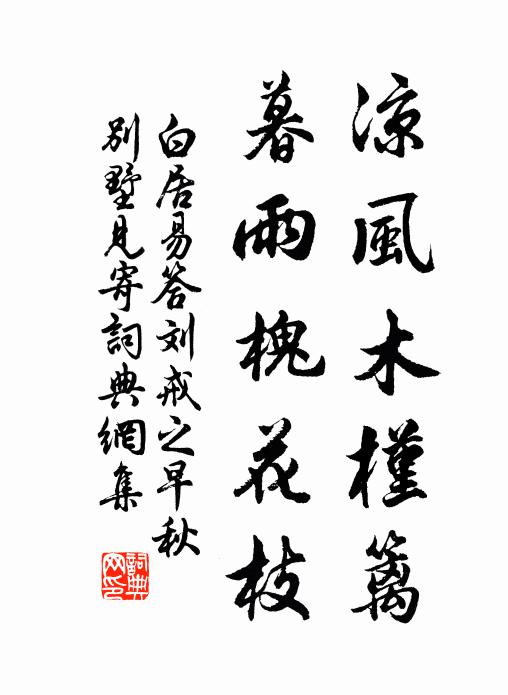 凉風木槿籬
暮雨槐花枝
白居易答刘戒之早秋
別墅見寄詞典網集
詞典網印